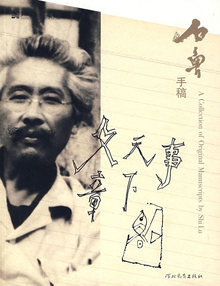 石鲁
手稿
A Collection of Original Manuscripts by Shi Lu
文章
天下
事
河北教育出版社